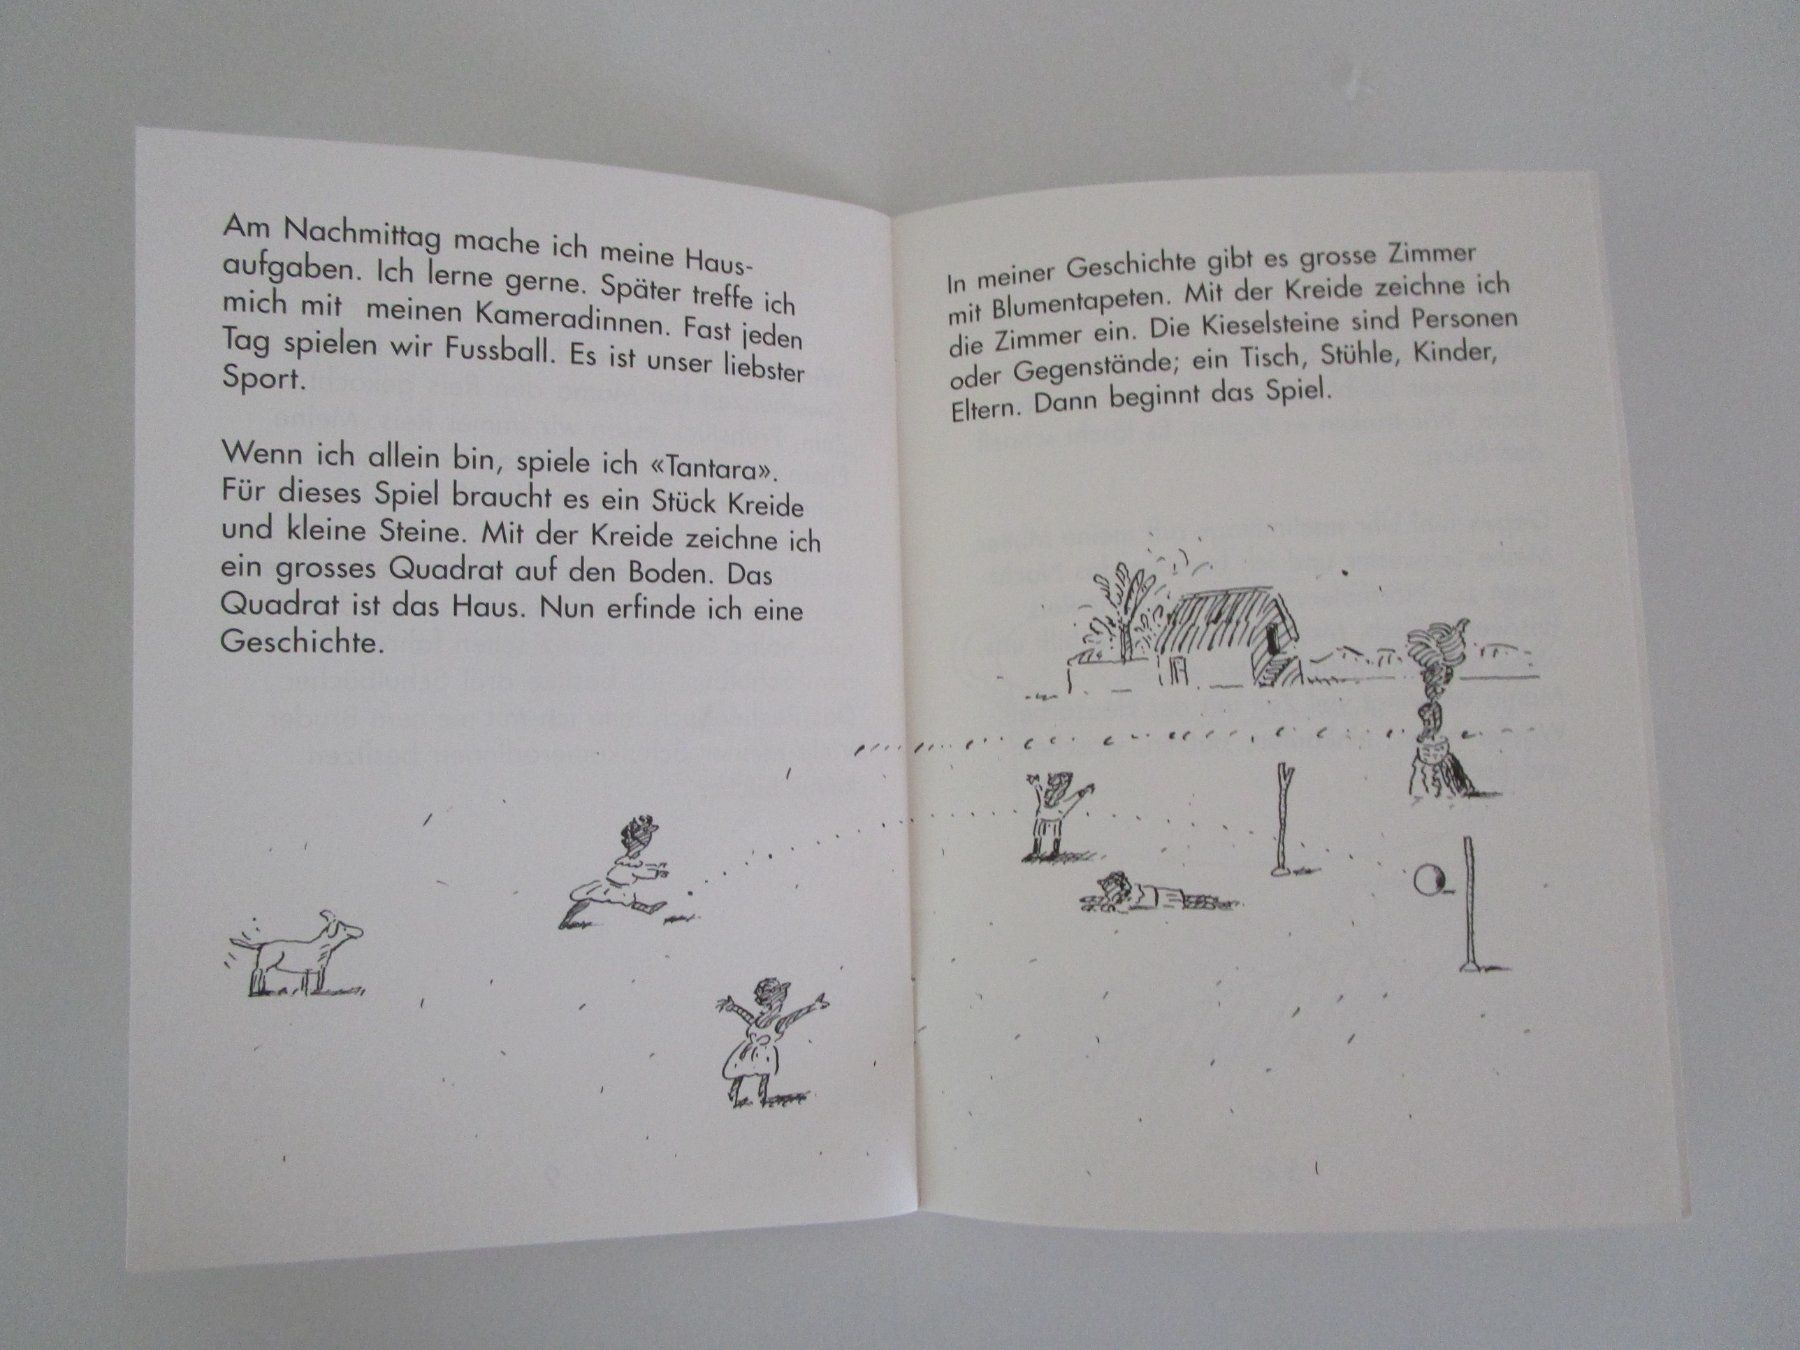 Am Nachmittag mache ich meine Haus-
aufgaben. Ich lerne gerne. Später treffe ich
mich mit meinen Kameradinnen. Fast jeden
Tag spielen wir Fussball. Es ist unser liebster
Sport.
Wenn ich allein bin, spiele ich «Tantara».
Für dieses Spiel braucht es ein Stück Kreide
und kleine Steine. Mit der Kreide zeichne ich
ein grosses Quadrat auf den Boden. Das
Quadrat ist das Haus. Nun erfinde ich eine
Geschichte.
In meiner Geschichte gibt es grosse Zimmer
mit Blumentapeten. Mit der Kreide zeichne ich
die Zimmer ein. Die Kieselsteine sind Personen
oder Gegenstände; ein Tisch, Stühle, Kinder,
Eltern. Dann beginnt das Spiel.